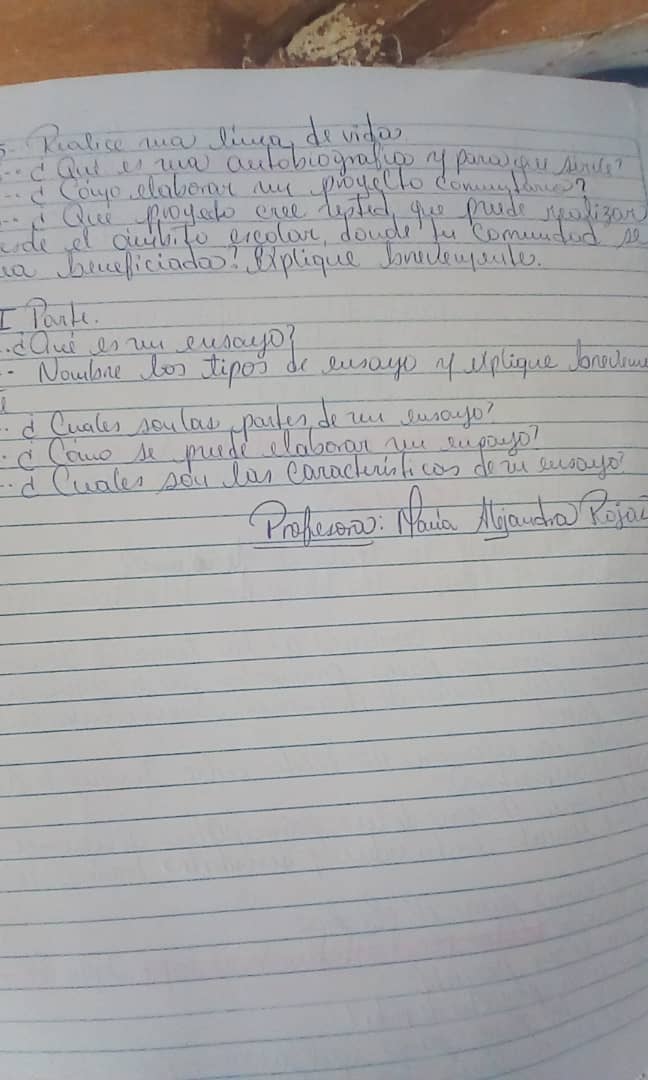 5. Realice una línea de vida
.. ¿ Qué es una autobiografía y para que sirve?
.. ¿ Cómo elaborar un proyecto comunitario?
.. ¿ Qué proyecto cree usted, que puede realizar
esde el ámbito escolar, donde tu comunidad se
ea beneficiada? Explique brevemente.
I Parte.
.. ¿Qué es un ensayo?
.. Nombre los tipos de ensayo y explique breveme
.. ¿ Cuales son las partes de un ensayo?
. ¿ Cómo se puede elaborar un ensayo?
.. ¿ Cuales son las características de un ensayo?
Profesora: María Alejandra Rojas